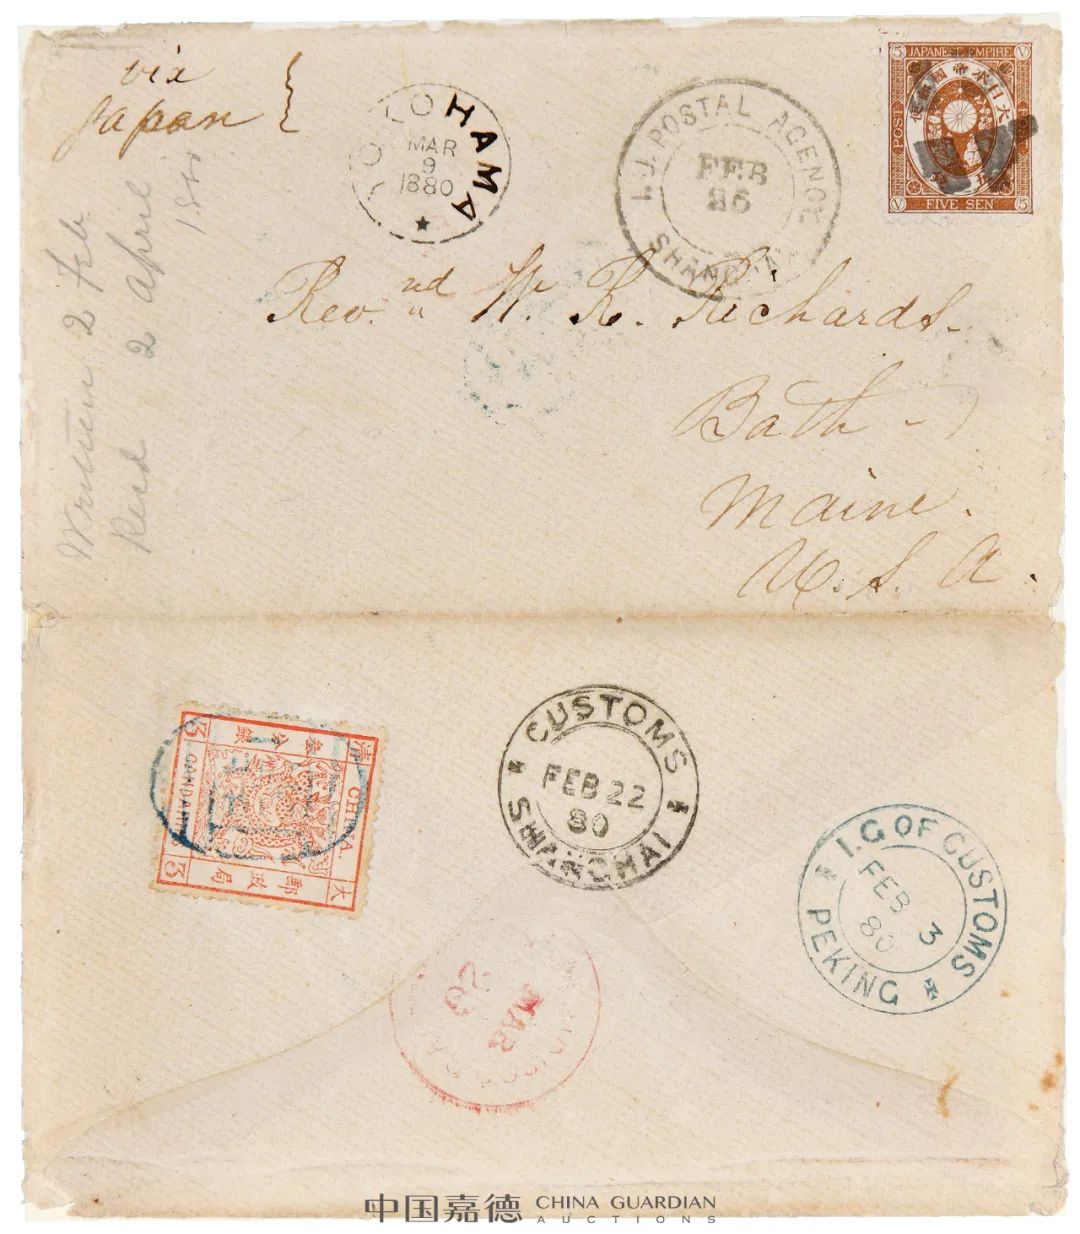 via
Japan
YOKOHAMA
MAR
9
1880
I.J. POSTAL AGENCE
FEB
26
SHANGHAI
5 JAPANESE EMPIRE V
大日本帝國郵便
POST
V FIVE SEN 5
Written 2 Feb
Recd 2 April
Rev.nd W. R. Richards.
Bath -
Maine.
U. S. A.
3
CHINA.
CANDARIN
大清
郵政局
3
CUSTOMS
FEB 22
80
SHANGHAI
I.G OF CUSTOMS
FEB 3
80
PEKING
MAR
中国嘉德 CHINA GUARDIAN
AUCTIONS